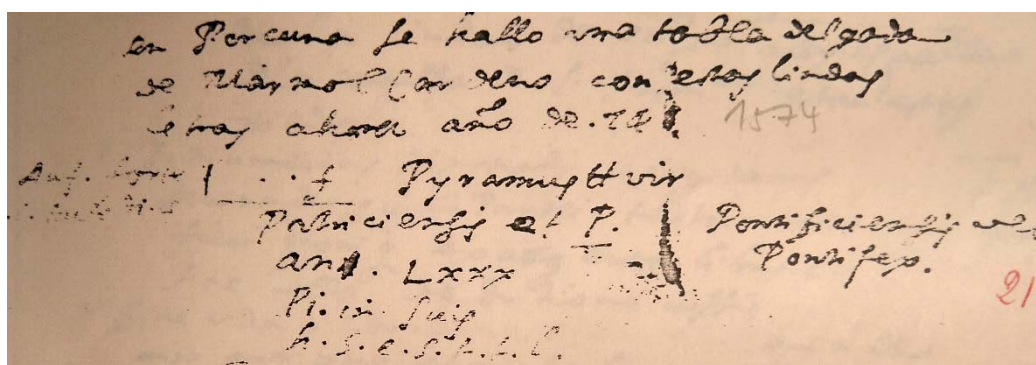 en Porcuna se hallo una tabla delgada
de Marmol Cardeno con estas lindas
letras ahora año de .74 1574
Pyramus II vir
Patriciensis et P. Pontificiensis vel
ann. Lxxx Pontifex.
Pi. in suis 21
h.s.e.s.t.t.l.